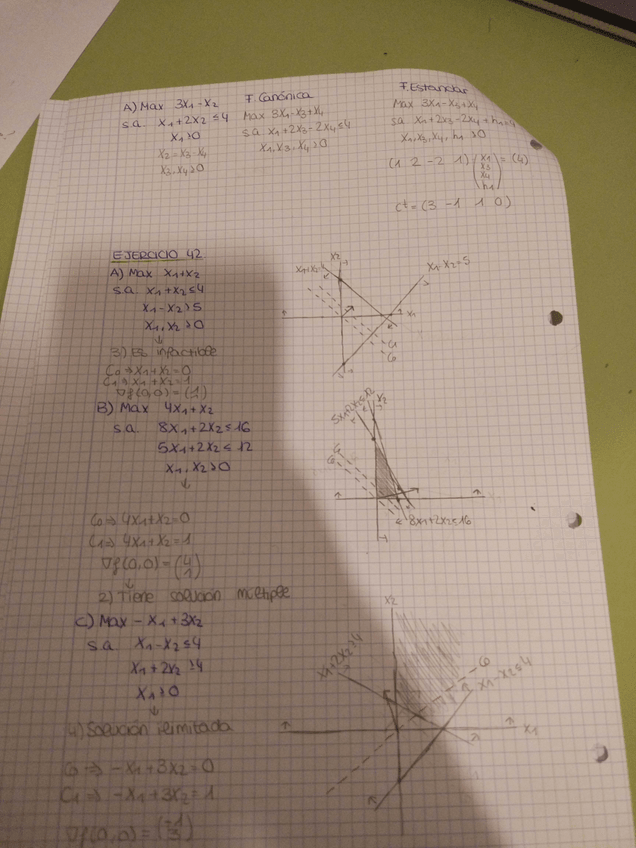 A) Max 3x₁-x₂
s.a. x₁+2x₂≤4
x₁≥0
x₂=x₃-x₄
x₃,x₄≥0
F. Canónica
Max 3x₁-x₃+x₄
s.a x₁+2x₃-2x₄≤4
x₁,x₃,x₄≥0
F. Estandar
Max 3x₁-x₃+x₄
s.a x₁+2x₃-2x₄+h₁=4
x₁,x₃,x₄,h₁≥0
(1 2 -2 1) (x₁ x₃ x₄ h₁) = (4)
cᵗ=(3 -1 1 0)
EJERCICIO 42.
A) Max x₁+x₂
s.a x₁+x₂≤4
x₁-x₂≥5
x₁,x₂≥0
↓
3) Es infactible
C₀⇒x₁+x₂=0
C₁⇒x₁+x₂=1
∇f(0,0)=(1 1)
x₂
x₁+x₂≤4
x₁-x₂=5
x₁
C₁
C₀
B) Max 4x₁+x₂
s.a. 8x₁+2x₂≤16
5x₁+2x₂≤12
x₁,x₂≥0
↓
C₀⇒4x₁+x₂=0
C₁⇒4x₁+x₂=1
∇f(0,0)=(4 1)
↓
2) Tiene solución múltiple
5x₁+2x₂≤12
x₂
C₁
C₀
8x₁+2x₂≤16
C) Max -x₁+3x₂
s.a x₁-x₂≤4
x₁+2x₂≥4
x₁≥0
↓
4) Solución ilimitada
C₀⇒-x₁+3x₂=0
C₁⇒-x₁+3x₂=1
∇f(0,0)=(-1 3)
x₂
x₁+2x₂≥4
C₀
x₁-x₂≤4
x₁